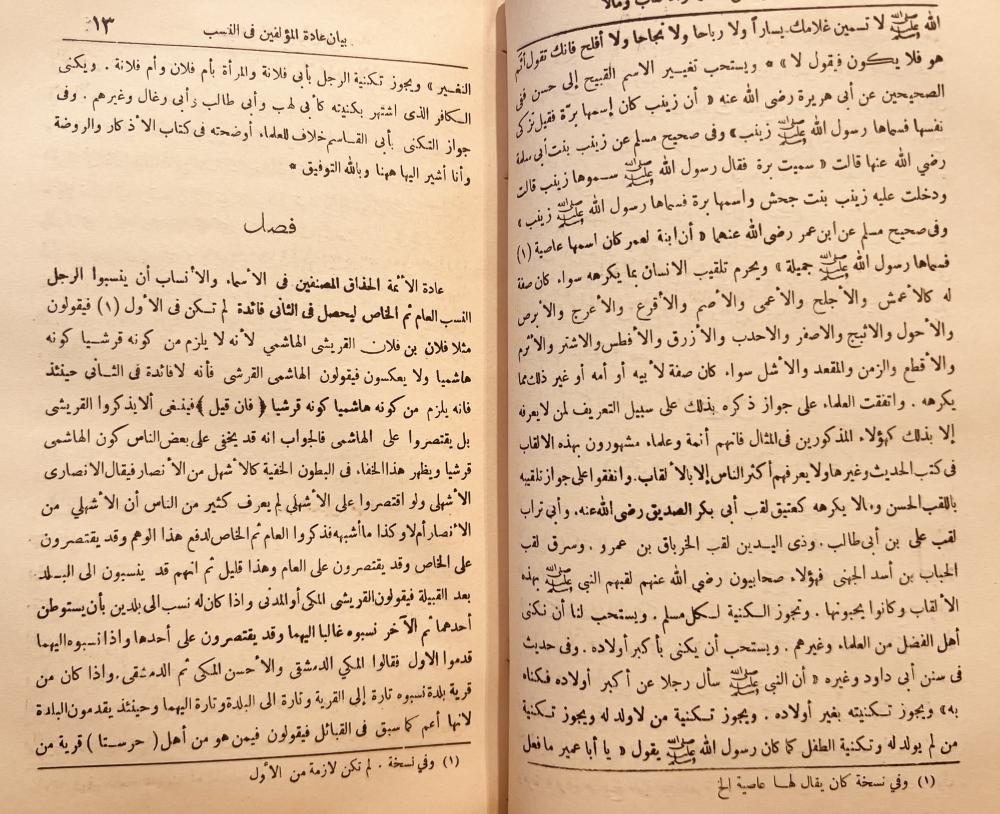 الله ﷺ لا تسمين غلامك يساراً ولا رباحا ولا نجاحا ولا أفلح فانك تقول أثم
هو فلا يكون فيقول لا » * ويستحب تغيير الاسم القبيح إلى حسن ففى
الصحيحين عن أبى هريرة رضى الله عنه « أن زينب كان إسمها برّة فقيل تزكى
نفسها فسماها رسول الله ﷺ زينب» وفى صحيح مسلم عن زينب بنت أبى سلمة
رضي الله عنها قالت « سميت برة فقال رسول الله ﷺ سموها زينب قالت
ودخلت عليه زينب بنت جحش واسمها برة فسماها رسول الله ﷺ زينب »
وفى صحيح مسلم عن ابن عمر رضى الله عنهما « أن ابنة لعمر كان اسمها عاصية (١)
فسماها رسول الله ﷺ جميلة » ويحرم تلقيب الانسان بما يكرهه سواء كان صفة
له كالأعمش والأجلح والأعمى والأصم والأقرع والأعرج والأبرص
والأحول والاثبج والأصفر والاحدب والأزرق والأفطس والاشتر والأثرم
والأقطع والزمن والمقعد والأشل سواء كان صفة لأبيه أو أمه أو غير ذلك مما
يكرهه . واتفقت العلماء على جواز ذكره بذلك على سبيل التعريف لمن لا يعرفه
إلا بذلك كهؤلاء المذكورين فى المثال فانهم أئمة وعلماء مشهورون بهذه الالقاب
فى كتب الحديث وغيرها ولا يعرفهم أكثر الناس إلا بالألقاب . واتفقوا على جواز تلقيبه
باللقب الحسن وما لا يكرهه كعتيق لقب أبى بكر الصديق رضى الله عنه . وأبى تراب
لقب على بن أبى طالب . وذى اليدين لقب الخرباق بن عمرو . وسرق لقب
الحباب بن أسد الجهنى فهؤلاء صحابيون رضي الله عنهم لقبهم النبي ﷺ بهذه
الألقاب وكانوا يحبونها . وتجوز الكنية لكل مسلم . ويستحب لنا أن نكنى
أهل الفضل من العلماء وغيرهم . ويستحب أن يكنى بأكبر أولاده . وفى حديث
فى سنن أبى داود وغيره « أن النبي ﷺ سأل رجلا عن أكبر أولاده فكناه
به» ويجوز تكنيته بغير أولاده . ويجوز تكنية من لا ولد له ويجوز تكنية
من لم يولد له وتكنية الطفل كما كان رسول الله ﷺ يقول « يا أبا عمير ما فعل
(١) وفي نسخة كان يقال لها عاصية الخ
بيان عادة المؤلفين فى النسب ١٣
النغير » ويجوز تكنية الرجل بأبى فلانة والمرأة بأم فلان وأم فلانة . ويكنى
الكافر الذى اشتهر بكنيته كأبى لهب وأبى طالب وأبى رغال وغيرهم . وفى
جواز التكنى بأبى القاسم خلاف للعلماء أوضحته فى كتاب الأذكار والروضة
وأنا أشير اليها ههنا وبالله التوفيق *
فصل
عادة الأئمة الحذاق المصنفين فى الأسماء والأنساب أن ينسبوا الرجل
النسب العام ثم الخاص ليحصل فى الثانى فائدة لم تكن فى الأول (١) فيقولون
مثلا فلان بن فلان القريشى الهاشمي لأنه لا يلزم من كونه قرشيا كونه
هاشميا ولا يعكسون فيقولون الهاشمى القرشي فأنه لا فائدة فى الثانى حينئذ
فانه يلزم من كونه هاشميا كونه قرشيا ( فان قيل ) فينبغى ألا يذكروا القريشى
بل يقتصروا على الهاشمي فالجواب انه قد يخفى على بعض الناس كون الهاشمى
قرشيا ويظهر هذا الخفاء فى البطون الخفية كالأشهل من الأنصار فيقال الانصارى
الأشهلى ولو اقتصروا على الأشهلي لم يعرف كثير من الناس أن الأشهلي من
الأنصار أم لا وكذا ما أشبهه فذكروا العام ثم الخاص لدفع هذا الوهم وقد يقتصرون
على الخاص وقد يقتصرون على العام وهذا قليل ثم انهم قد ينسبون الى البلد
بعد القبيلة فيقولون القريشى المكى أو المدنى واذا كان له نسب الى بلدين بأن يستوطن
أحدهما ثم الآخر نسبوه غالبا اليهما وقد يقتصرون على أحدها واذا نسبوه اليهما
قدموا الاول فقالوا المكي الدمشقى والأحسن المكى ثم الدمشقى . واذا كان من
قرية بلدة نسبوه تارة إلى القرية وتارة الى البلدة وتارة اليهما وحينئذ يقدمون البلدة
لانها أعم كما سبق فى القبائل فيقولون فيمن هو من أهل ( حرستا ) قرية من
(١) وفي نسخة . لم تكن لازمة من الأول